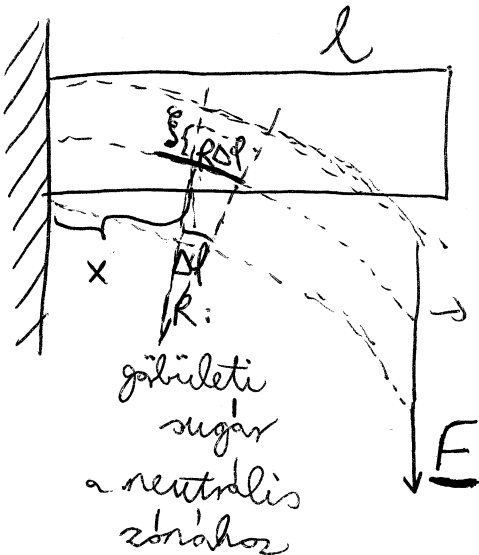 l
ξ{
RΔφ
x
Δφ
R:
görbületi
sugár
a neutrális
zónához
F